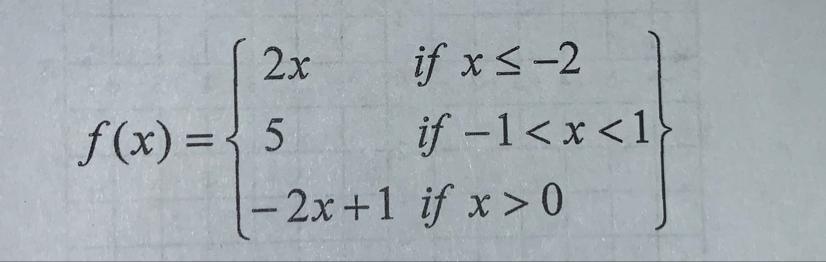 f(x) = { 2x if x ≤ −2
5 if −1 < x < 1
−2x+1 if x > 0 }